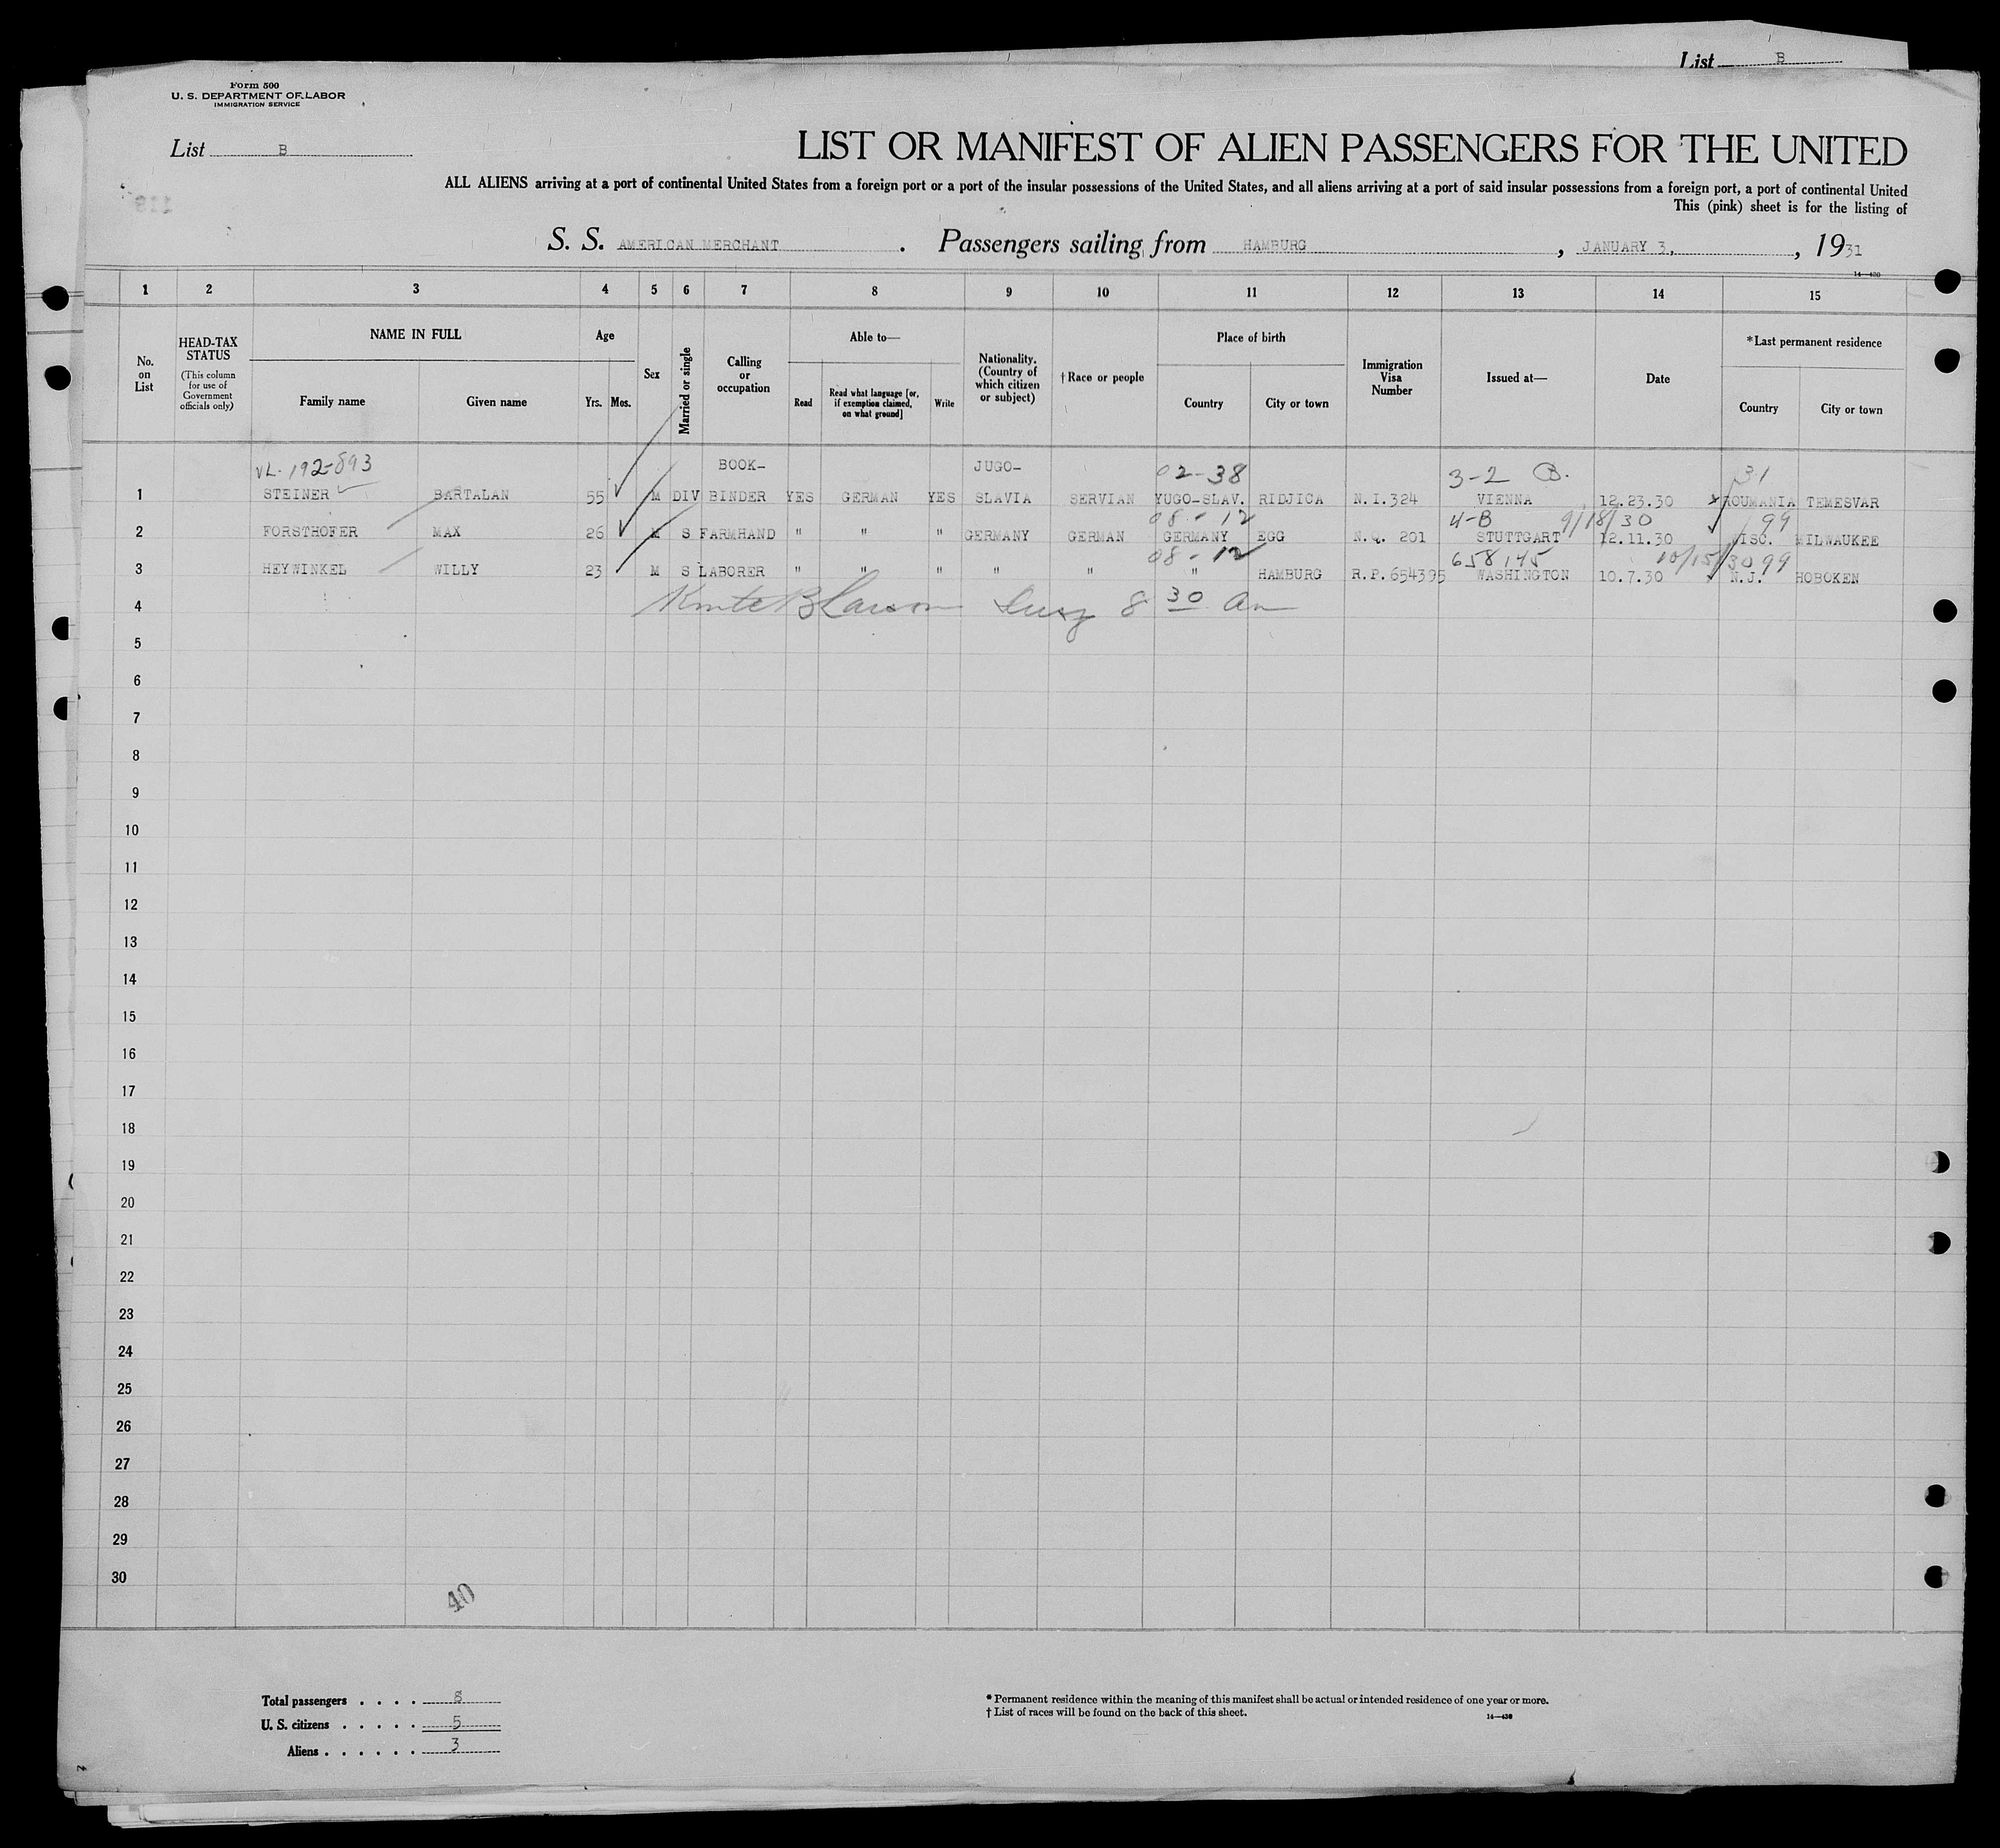 List B
Form 500
U. S. DEPARTMENT OF LABOR
IMMIGRATION SERVICE
List B
LIST OR MANIFEST OF ALIEN PASSENGERS FOR THE UNITED
ALL ALIENS arriving at a port of continental United States from a foreign port or a port of the insular possessions of the United States, and all aliens arriving at a port of said insular possessions from a foreign port, a port of continental United
This (pink) sheet is for the listing of
S. S. AMERICAN MERCHANT . Passengers sailing from HAMBURG , JANUARY 3, , 1931
14—430
1 2 3 4 5 6 7 8 9 10 11 12 13 14 15
No. on List
HEAD-TAX STATUS (This column for use of Government officials only)
NAME IN FULL
Family name Given name
Age
Yrs. Mos.
Sex
Married or single
Calling or occupation
Able to—
Read Read what language [or, if exemption claimed, on what ground] Write
Nationality. (Country of which citizen or subject)
† Race or people
Place of birth
Country City or town
Immigration Visa Number
Issued at—
Date
*Last permanent residence
Country City or town
VL-192-893 BOOK- JUGO- 02-38 3-2 B. 31
1 STEINER BARTALAN 55 M DIV BINDER YES GERMAN YES SLAVIA SERVIAN YUGO-SLAV. RIDJICA N.I.324 VIENNA 12.23.30 ROUMANIA TEMESVAR
08-12 4-B 9/18/30 99
2 FORSTHOFER MAX 26 M S FARMHAND " " " GERMANY GERMAN GERMANY EGG N.Q. 201 STUTTGART 12.11.30 WISC. MILWAUKEE
08-12 658145 10/15/30 99
3 HEYWINKEL WILLY 23 M S LABORER " " " " " " HAMBURG R.P.654395 WASHINGTON 10.7.30 N.J. HOBOKEN
4 B Larson 8 30 am
5
6
7
8
9
10
11
12
13
14
15
16
17
18
19
20
21
22
23
24
25
26
27
28
29
30
40
Total passengers . . . . 8
U. S. citizens . . . . . 5
Aliens . . . . . . 3
* Permanent residence within the meaning of this manifest shall be actual or intended residence of one year or more.
† List of races will be found on the back of this sheet.
14—430